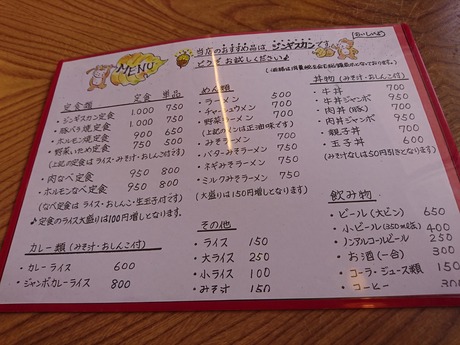 MENU
当店のおすすめ品は ジンギスカンです。
どうぞ お試しください♪
おいしいよ
定食類 定食 単品
・ジンギスカン定食 1,000 750
・豚バラ焼定食 1,000 750
・ホルモン焼定食 900 650
・野菜いため定食 950 750
(上記の定食は ライス・みそ汁・おしんこ付です)
・肉なべ定食 950 800
・ホルモンなべ定食 950 800
(なべ定食は ライス・おしんこ・生玉子付です)
♪定食のライス大盛りは100円増しとなります。
カレー類 (みそ汁・おしんこ付)
・カレーライス 600
・ジャンボカレーライス 800
めん類
・ラーメン 500
・チャーシュウメン 700
・野菜ラーメン 700
(上記ラメンは正油味です)
・みそラーメン 700
・バターみそラーメン 750
・ネギみそラーメン 750
・ミルクみそラーメン 750
(大盛りは150円増しとなります)
その他
・ライス 150
・大ライス 250
・小ライス 100
・みそ汁 150
丼物 (みそ汁・おしんこ付)
・牛丼 700
・牛丼ジャンボ 950
・肉丼(豚) 700
・肉丼ジャンボ 950
・親子丼 700
・玉子丼 600
(みそ汁なしは50円引きとなります)
飲み物
・ビール(大ビン) 650
・小ビール(350ml缶) 400
・ノンアルコールビール 250
・お酒(一合) 300
・コーラ・ジュース類 150
・コーヒー 300